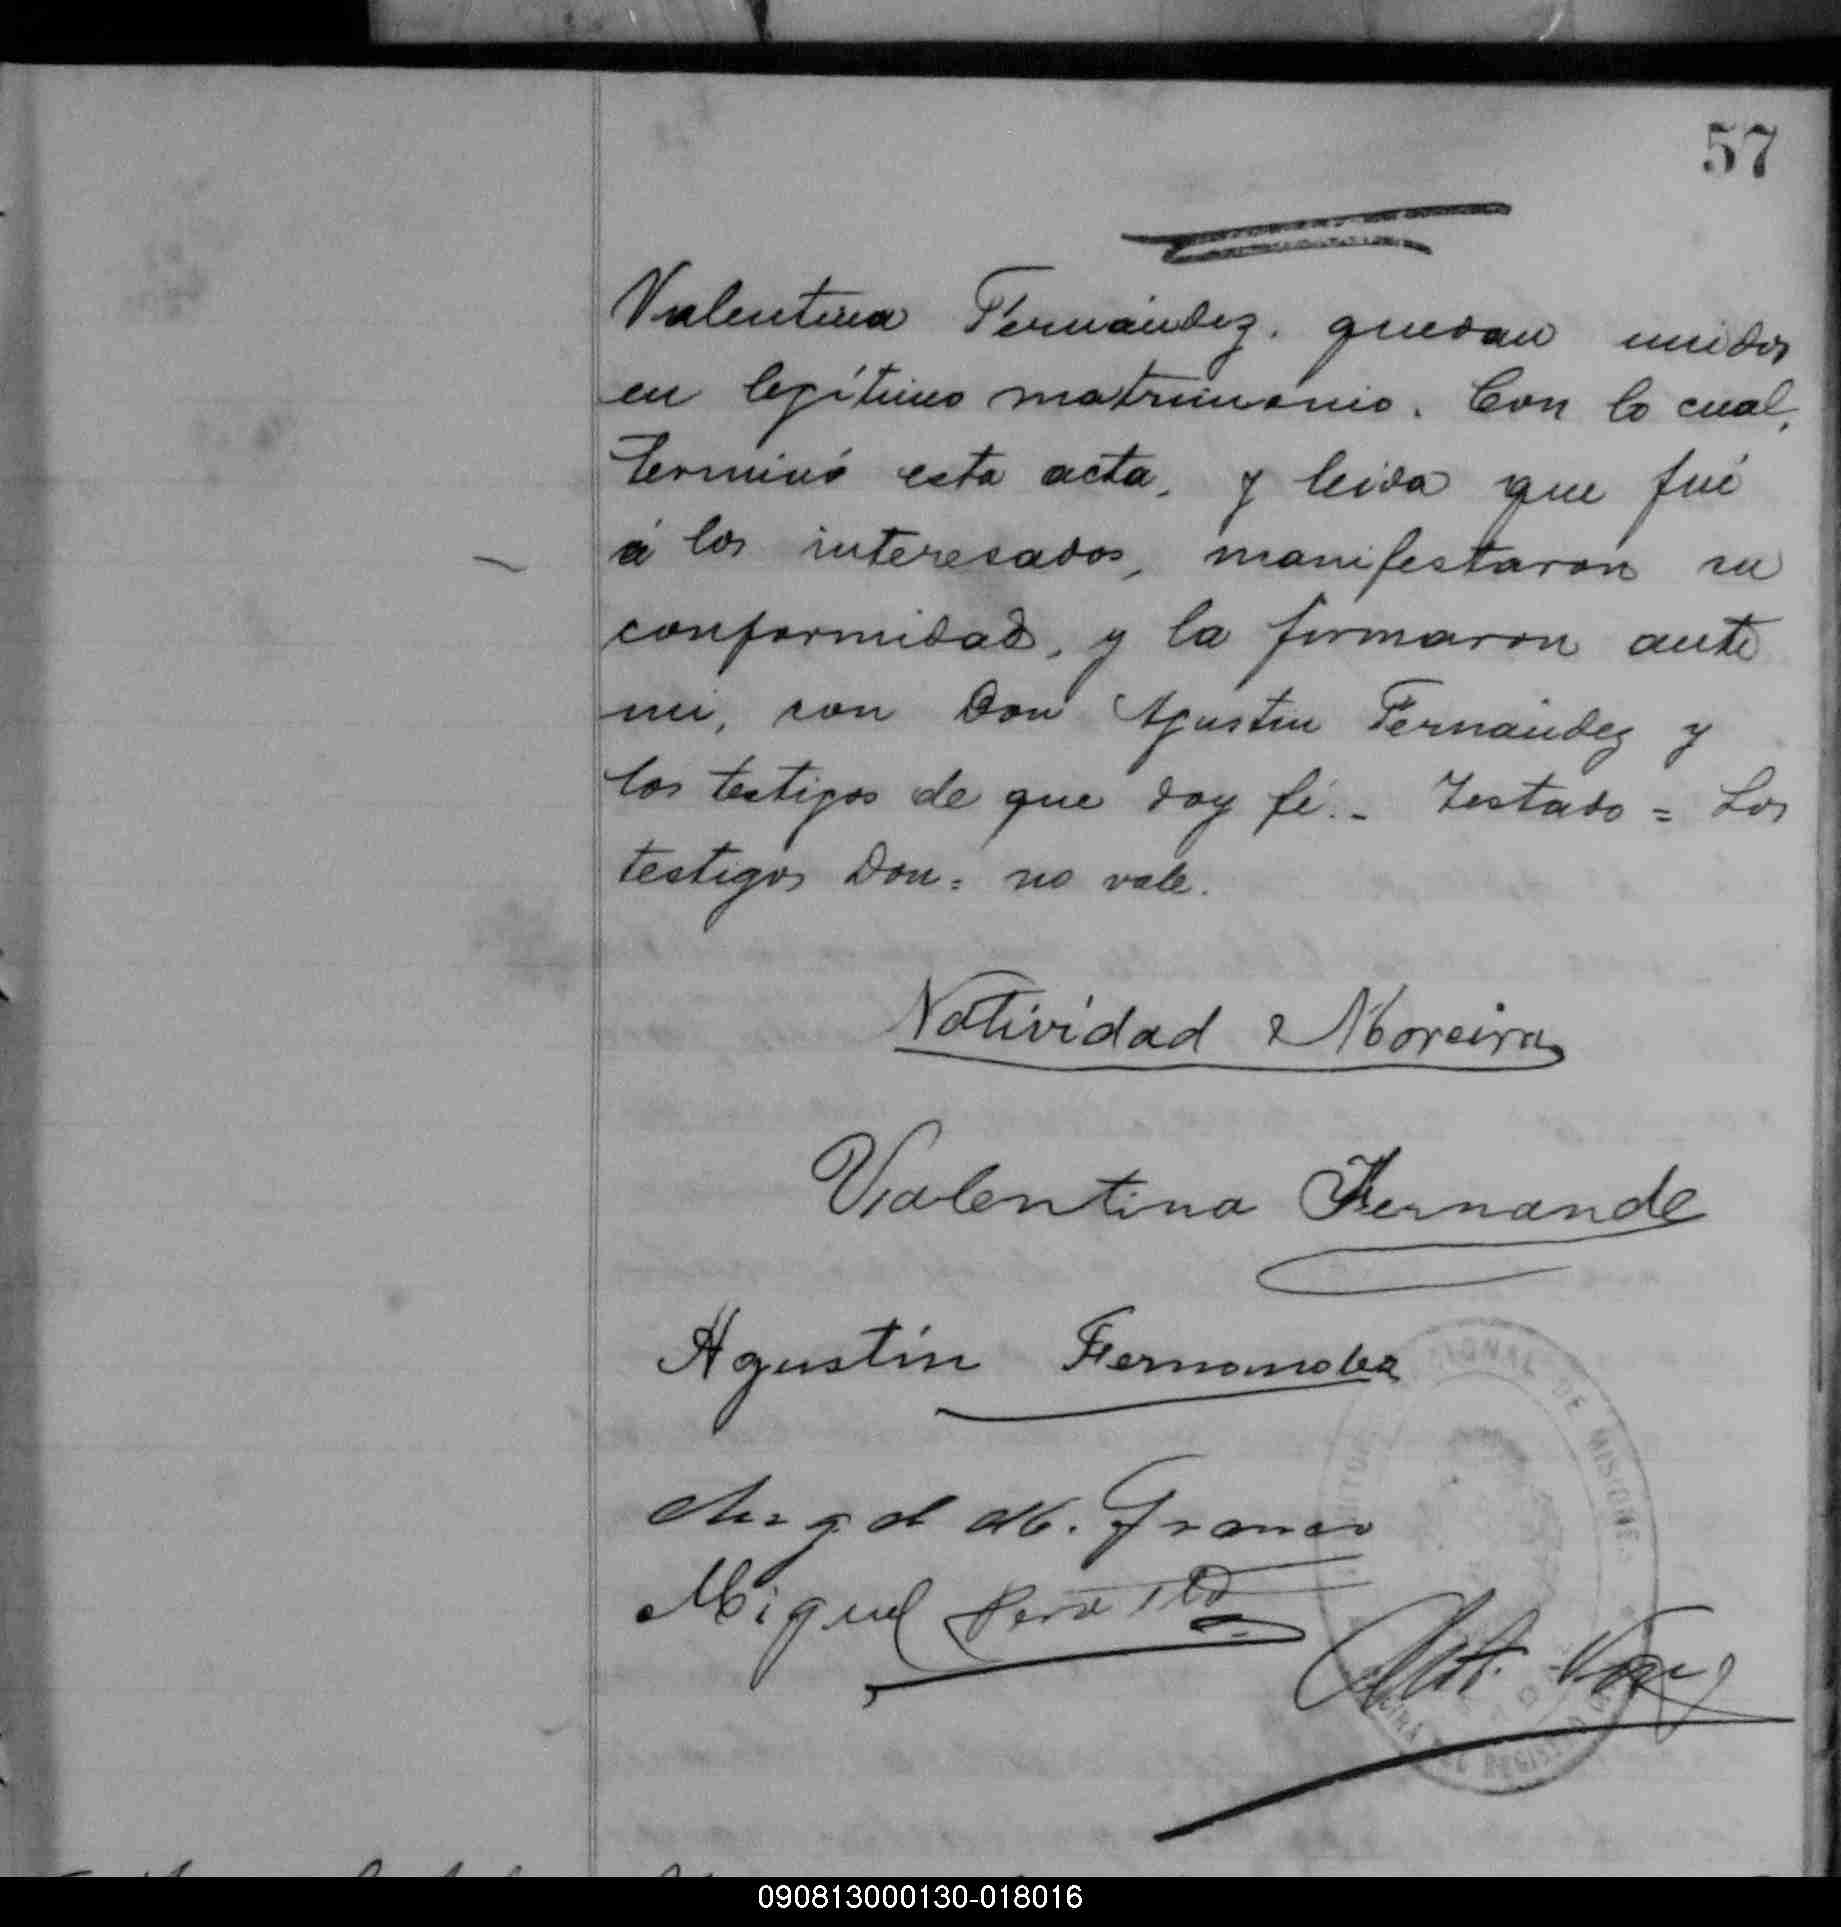 57
Valentina Fernández, quedan unidos
en legítimo matrimonio. Con lo cual,
terminó esta acta, y leida que fué
á los interesados, manifestaron su
conformidad, y la firmaron ante
mi, con Don Agustin Fernández y
los testigos de que doy fé.- Testado = Los
testigos Don = no vale.
Natividad Moreira
Valentina Fernande
Agustín Fernandez
Angel M. Franco
Miguel
NAL DE MISIONES
DEL REGISTRO
090813000130-018016